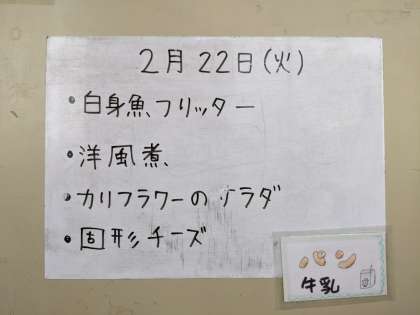 2月22日(火)
・白身魚フリッター
・洋風煮
・カリフラワーのサラダ
・固形チーズ
パン
牛乳